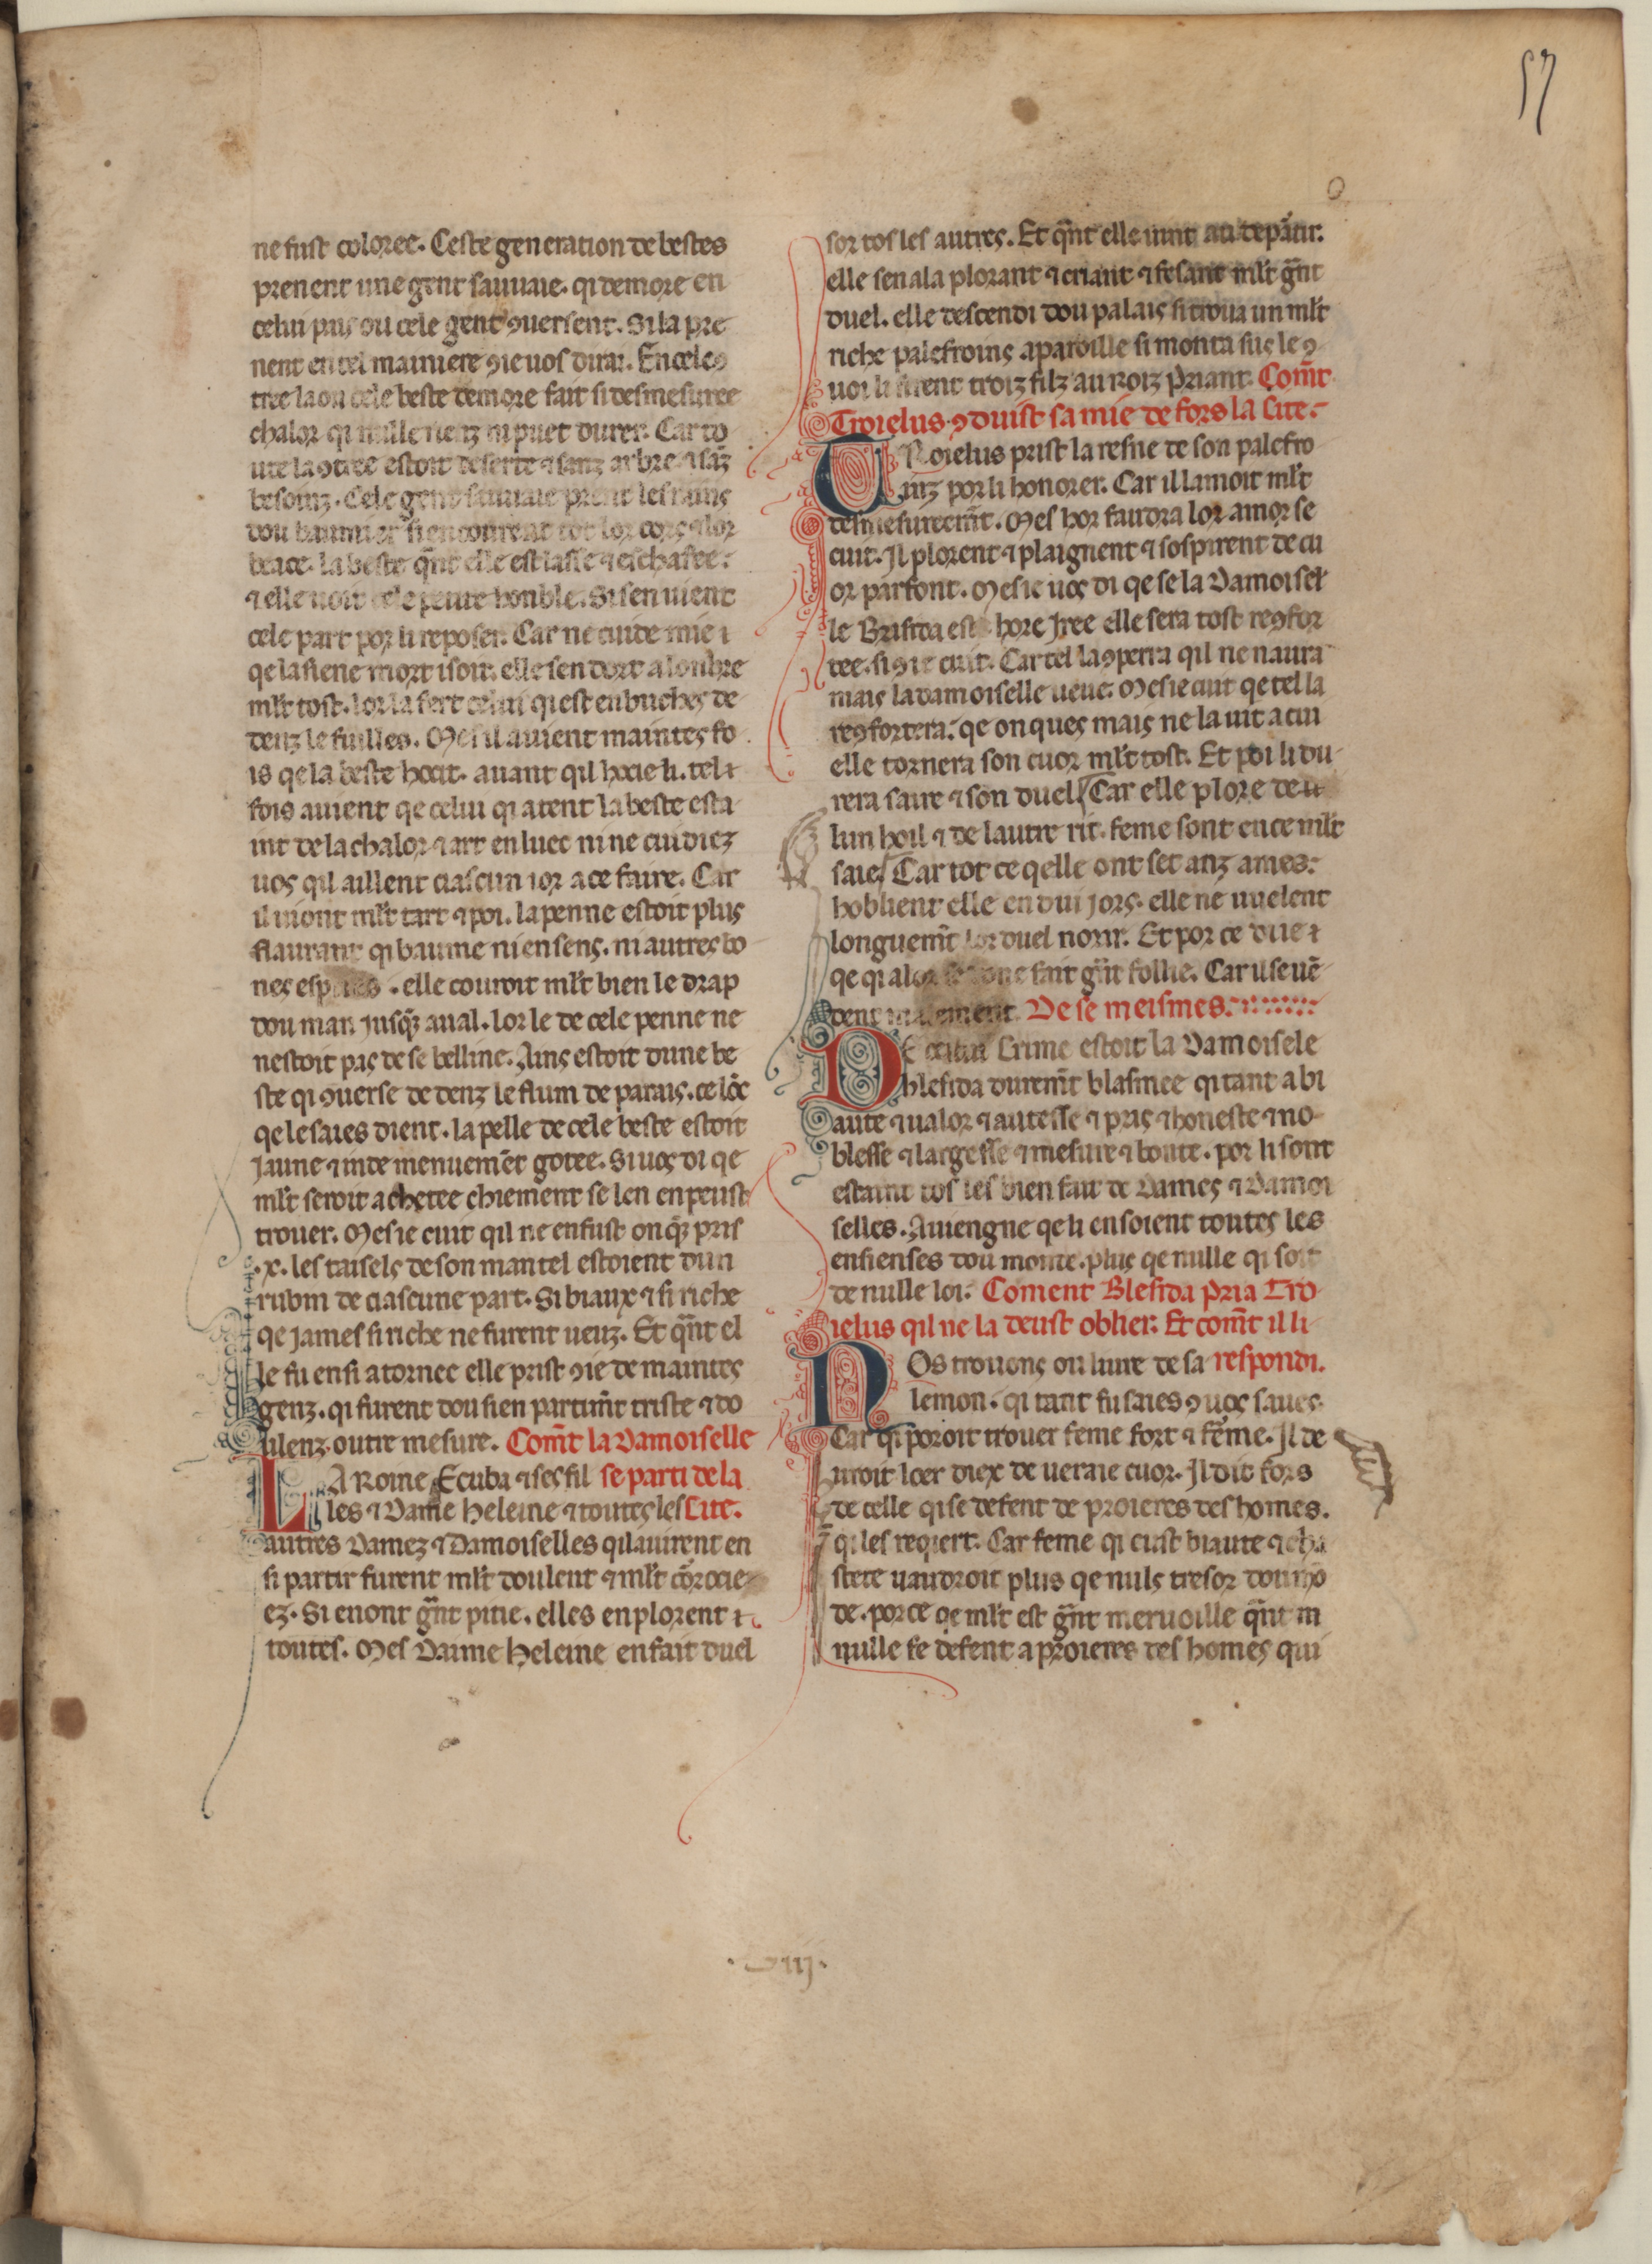 57
ne fust coloree. Ceste generation de bestes
prenent une gent sauuaie. qi demore en
celui pais ou cele gent ꝯuersent. Si la pre
nent en tel mainiere ꝯ ie uos dirai. En cele ꝯ
tree la ou cele beste demore fait si desmesuree
chalor qi nulle rienz ni puet durer. Car to
ute la ꝯtree estoit deserte ⁊ sanz arbre ⁊ sãz
besoinz. Cele gent sauuaie prent les rains
dou baumier si encourent tot lor cors ⁊ lor
brace. la beste qñt elle est lasse ⁊ eschafee.
⁊ elle uoit cele honble. Si sen uient
cele part por li reposer. Car ne cuide mie i
qe la siene mort i soit. elle sen dort a lonbre
ml't tost. lor la fert celui qi est enbuches de
denz le fuilles. Mes il auient maintes fo
is qe la beste hocit. auant qil hocie li. tel ⁊
fois auient qe celui qi atent la beste esta
int de la chalor ⁊ art en luec ni ne cuidiez
uos qil aillent ciascun ior a ce faire. Car
il uiont ml't tart ⁊ poi. la penne estoit plus
flaurant qi baume ni ensens. ni autres bo
nes espices. elle couroit ml't bien le drap
dou man iusq̃ aual. lorle de cele penne ne
nestoit pas de se belline. Ains estoit dune be
ste qi ꝯuerse de denz le flum de parais. ce lõc
qe le saies dient. la pelle de cele beste estoit
jaune ⁊ inde menuemẽt gotee. Si uos di qe
ml't seroit achetee chiement se len en peust
trouer. Mes ie cuit qil ne en fust onq̃z pris
.x. les taisels de son mantel estoient dun
rubin de ciascune part. Si biaux ⁊ si riche
qe james si riche ne furent ueuz. Et qñt el
le fu ensi atornee elle prist ꝯie de maintes
genz. qi furent dou sien partimẽt triste ⁊ do
ulenz outre mesure. Com̃t la Damoiselle
LA Roine Ecuba ⁊ ses fil se parti de la
les ⁊ Dame Heleine ⁊ toutes les Cite.
autres Damez ⁊ Damoiselles qi lauirent en
si partir furent ml't doulent ⁊ ml't cõrocie
ez. Si en ont gr̃nt pitie. elles en plorent ⁊
toutes. Mes Dame Heleine en fait duel
sor tos les autres. Et qñt elle uint au depãtir.
elle sen ala plorant ⁊ criant ⁊ fesant ml't gr̃nt
duel. elle descendi dou palais si troua un ml't
riche palefroins aparoille si monta sus le ꝯ
uoi li firent troiz filz au Roiz Priant. Com̃t
Troielus ꝯduist sa mie de fors la Cite.
TRoielus prist la resne de son palefro
inz por li honorer. Car il lamoit ml't
desmesureem̃t. Mes hor faudra lor amor se
cuit. Il plorent ⁊ plaignent ⁊ sospirent de cu
or parfont. Mes ie uos di qe se la Damoisel
le Brisida est hore iree elle sera tost reꝯfor
tee. si ꝯ ie cuit. Car tel la ꝯperra qil ne naura
mais la damoiselle ueue. Mes ie cuit qe tel la
reꝯfortera. qe onques mais ne la uit a cui
elle tornera son cuor ml't tost. Et poi li du
rera saire ⁊ son duel. Car elle plore de u
lun hoil ⁊ de lautre rit. feme sont en ce ml't
saies. Car tot ce qelle ont set anz ames.
hoblient elle en dui jors. elle ne uuelent
longuem̃t lor duel norir. Et por ce due ⁊
qe qi alor fait gr̃nt follie. Car il se uẽ
dent malement. De se meismes.
DE celui Crime estoit la Damoisele
blesida durem̃t blasmee qi tant a bi
aute ⁊ ualor ⁊ autesse ⁊ pris ⁊ honeste ⁊ no
blesse ⁊ largesse ⁊ mesure ⁊ bonte. por li sont
estaint tos les bien fait de Dames ⁊ Damoi
selles. Auiengne qe li en soient toutes les
ensienses dou monde. plus qe nulle qi soit
de nulle loi. Coment Blesida pria Tro
ielus qil ne la deust oblier. Et com̃t il li
NOs trouons ou liure de sa respondi.
lemon. qi tant fu saies ꝯ uos saues.
Car qi poroit trouer feme fort ⁊ fẽme. Il de
uroit loer diex de ueraie cuor. Il dit fors
de celle qi se defent de proieres des homes.
qi les reqiert. Car feme qi ciast biaute ⁊ cha
stete uaudroit plus qe nuls tresor dou mõ
de. por ce qe ml't est gr̃nt meruoille qñt in
nulle se defent a proieres des homes qui